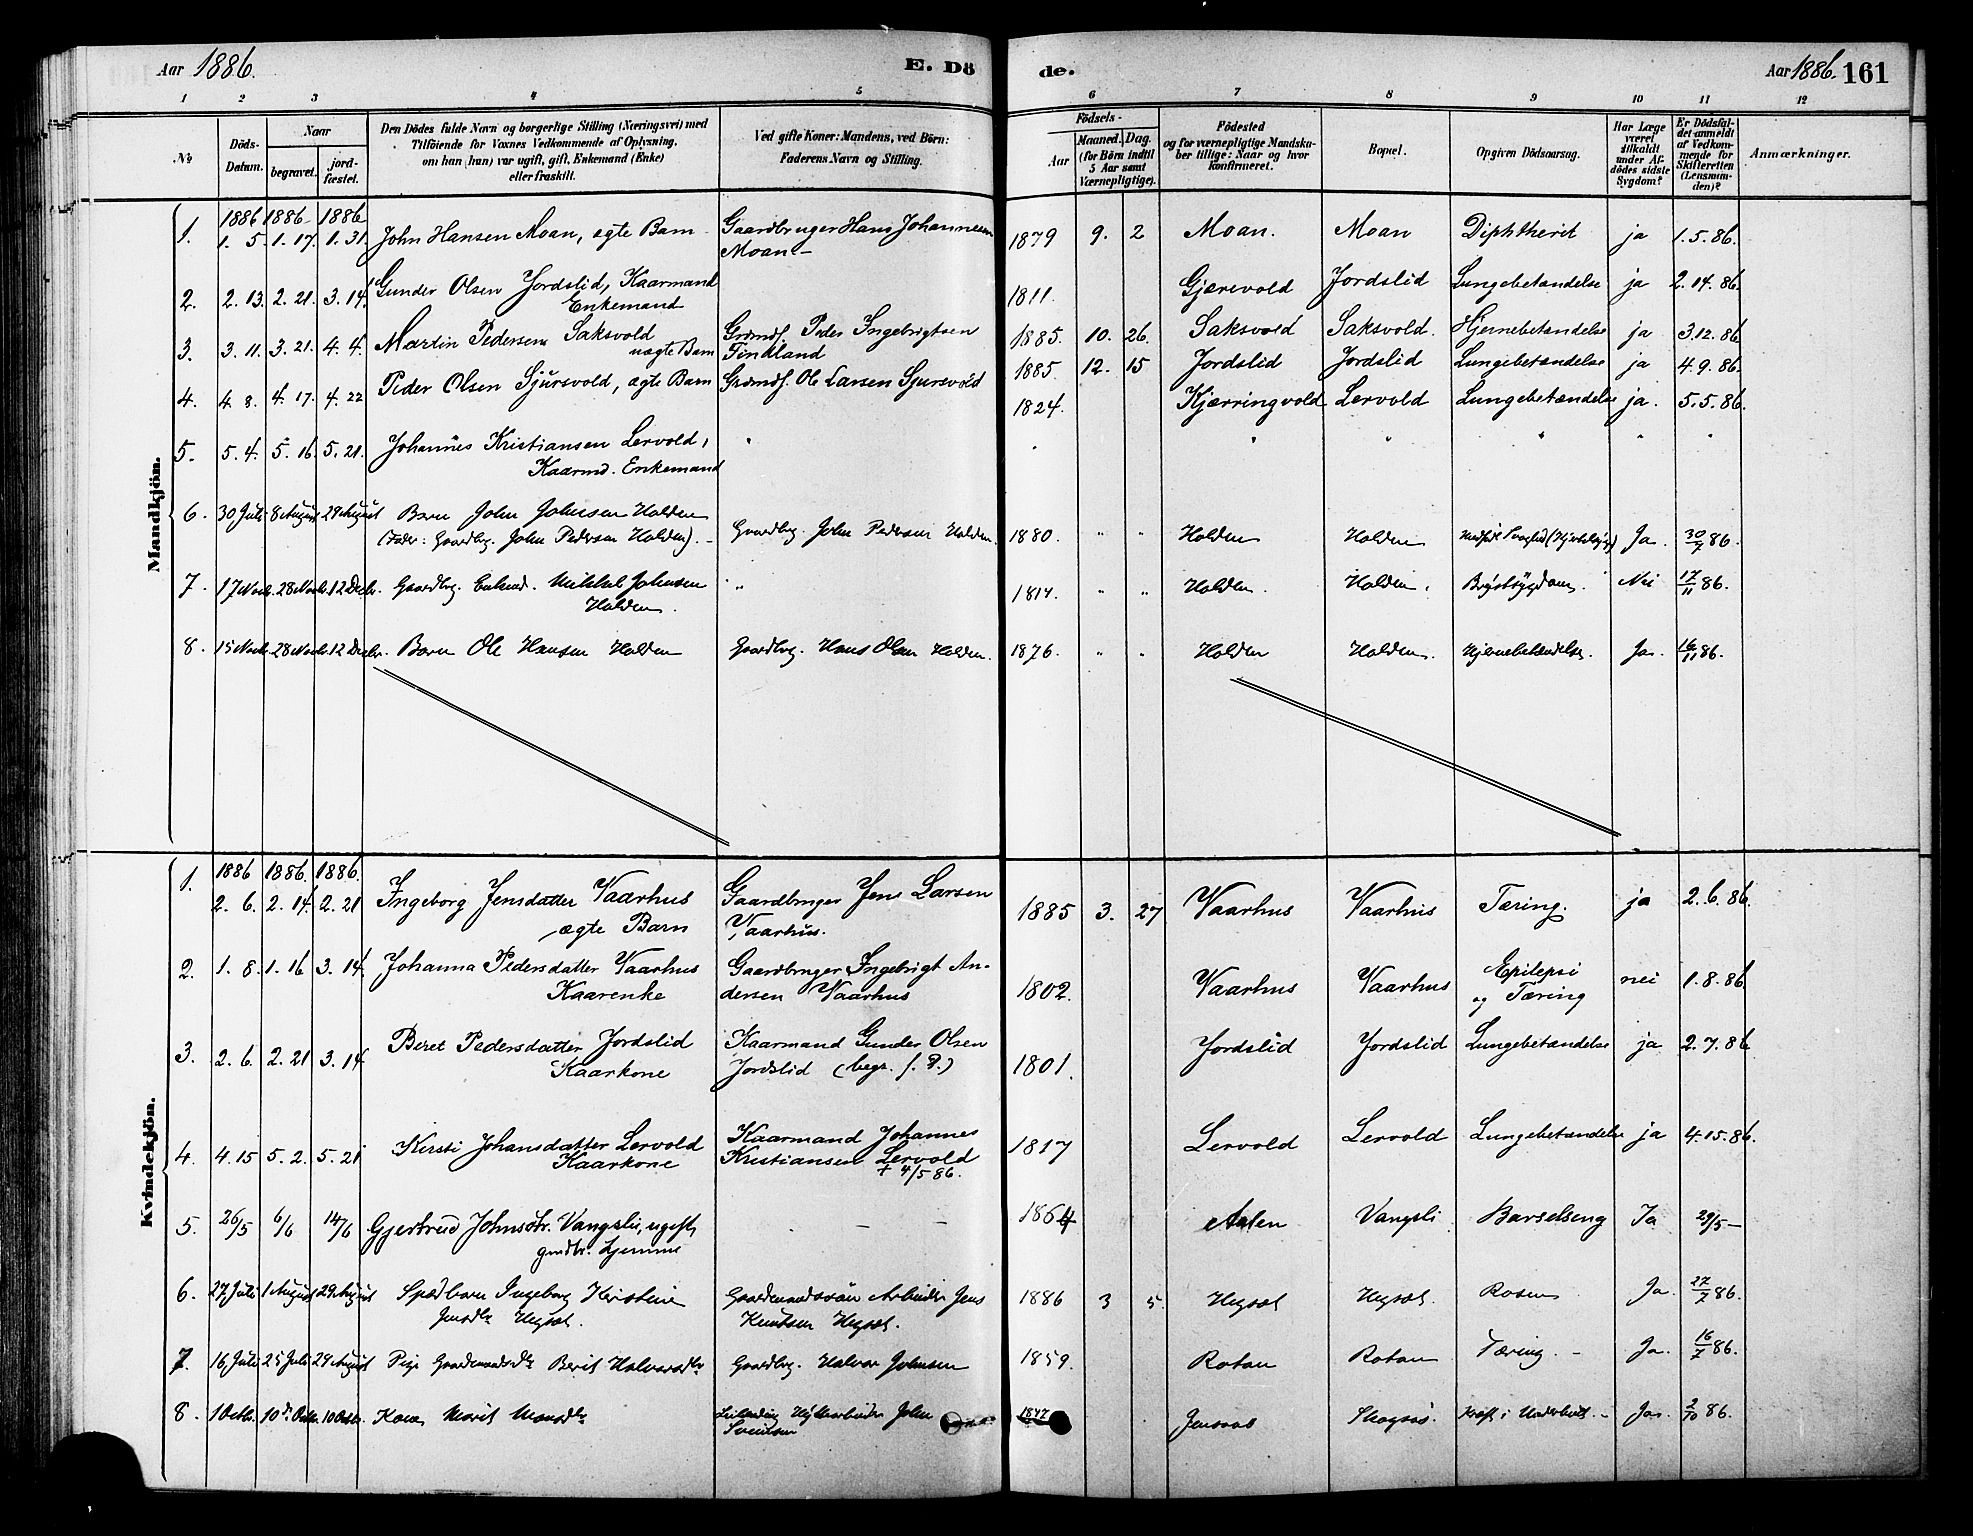 Aar 1886.
E. Dö
de.
Aar 1886. 161
1 2 3 4 5 6 7 8 9 10 11 12
No
Döds-
Datum.
Naar
begravet.
jord-
fæstet.
Den Dödes fulde Navn og borgerlige Stilling (Næringsvei) med
Tilföiende for Voxnes Vedkommende af Oplysning,
om han (hun) var ugift, gift, Enkemand (Enke)
eller fraskilt.
Ved gifte Koner: Mandens, ved Börn:
Faderens Navn og Stilling.
Födsels-
Aar
Maaned. Dag.
(for Börn indtil
5 Aar samt
Værnepligtige).
Födested
og for værnepligtige Mandska-
ber tillige: Naar og hvor
konfirmeret.
Bopæl.
Opgiven Dödsaarsag.
Har Læge
været
tilkaldt
under Af-
dödes sidste
Sygdom?
Er Dödsfal-
det anmeldt
af Vedkom-
mende for
Skifteretten
(Lensman-
den)?
Anmærkninger.
Mandkjön.
1886 1886 1886
1. 1. 5. 1. 17. 1. 31. John Hansen Moan, ægte Barn Gaardbruger Hans Johannesen 1879 9. 2 Moan. Moan Diphtherit ja 1.5.86.
Moan
2. 2. 13. 2. 21. 3. 14. Gunder Olsen Jordslid, Kaarmand 1811. Gjærevold Jordslid Lungebetændelse ja 2.14.86.
Enkemand
3. 3. 11. 3. 21. 4. 4. Martin Pedersen Saksvold Grdmdf. Peder Ingebrigtsen 1885. 10. 26. Saksvold Saksvold. Hjernebetændelse ja 3.12.86.
uægte Barn Finkland
4. 4. 8. 4. 17. 4. 22 Peder Olsen Sjursvold, ægte Barn Grdmdf. Ole Larsen Sjursvold 1885. 12. 15 Jordslid Jordslid Lungebetændelse ja 4.9.86.
1824. Kjærringvold Lervold Lungebetændelse ja. 5.5.86.
5. 5. 4. 5. 16. 5. 21. Johannes Kristiansen Lervold, " " " " " " "
Kaarmd. Enkemand
6. 30 Juli 8 August 29 August Barn John Johnsen Holden
(Fader: Gaardbrg. John Pedersen Holden). Gaardbrg. John Pedersen Holden. 1880. " " Holden Holden Ja. 30/7 86.
7. 17 Novbr. 28 Novbr. 12 Decbr. Gaardbrg. Enkmd. Mikkel Johnsen " 1817. " " Holden. Holden. Brystsygdom. Nei 17/11 86.
Holden.
8. 15 Novbr. 28 Novbr. 12 Decbr. Barn Ole Hansen Holden Gaardbrg. Hans Olsen Holden. 1876. " " Holden Holden. Hjernebetændelse. Ja. 16/11 86.
Kvindekjön.
1886 1886. 1886.
1. 2. 6. 2. 14. 2. 21 Ingeborg Jensdatter Vaarhus Gaardbruger Jens Larsen 1885 3. 27 Vaarhus Vaarhus Tæring. ja 2.6.86.
ægte Barn Vaarhus.
2. 1. 8. 1. 16 3. 14. Johanna Pedersdatter Vaarhus Gaardbruger Ingebrigt An- 1802. Vaarhus Vaarhus Epilepsi nei 1.8.86
Kaarenke dersen Vaarhus og Tæring
3. 2. 6. 2. 21 3. 14 Beret Pedersdatter Jordslid Kaarmand Gunder Olsen 1801. Jordslid Jordslid Lungebetændelse ja 2.7.86
Kaarkone Jordslid (begr. s. D.)
4. 4. 15 5. 2. 5. 21 Kirsti Johansdatter Lervold Kaarmand Johannes 1817 Lervold Lervold Lungebetændelse ja 4.15.86.
Kaarkone Kristiansen Lervold
+ 4/5 86.
5. 26/5 6/6 14/6 Gjertrud Johnsdtr. Vangsli, ugift, — — 1864 Aalen Vangsli Barselseng Ja 29/5 —
6. 27 Juli 1 August 29 August Spædbarn Ingeborg Kristine Gaardmandssøn Arbeider Jens 1886 3 5. Hegset Hegset. Ja. 27/7 86.
Jensdtr Hegset. Knutsen Hegset.
7. 16 Juli 25 Juli 29 August Pige Gaardmandsdtr Berit Halvorsdtr Gaardbrg. Halvor Johnsen 1859. Rotan Rotan Tæring. — Ja. 16/7 86.
8. 1 Octbr. 10de Octbr. 10 Octbr. Kone Marit Monsdtr Hytterbeider John 1847 Kræft i Underlivet. — Ja. 2/10 86.
Svendsen